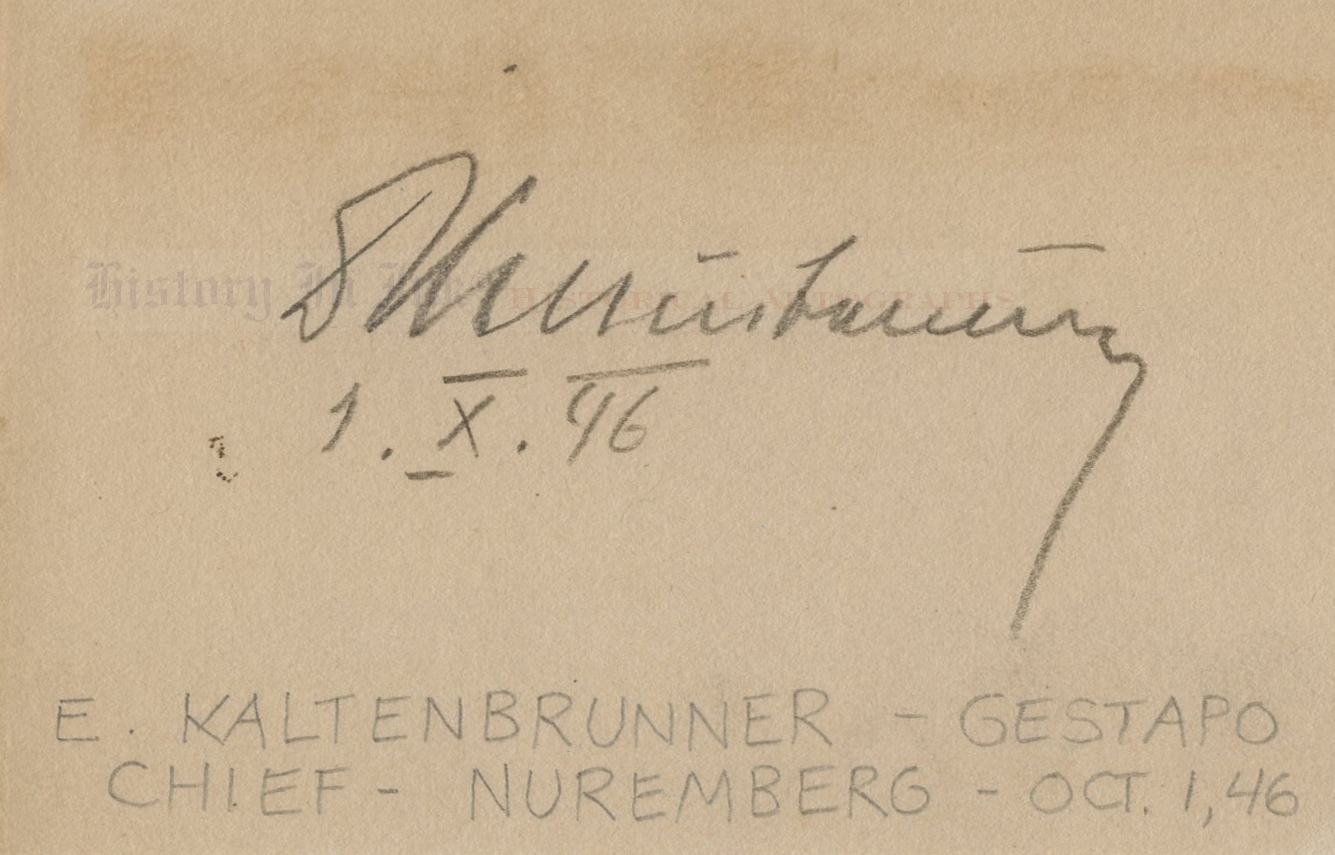 DKaltenbrunner
1. X. 46
History In Ink HISTORICAL AUTOGRAPHS
E. KALTENBRUNNER - GESTAPO
CHIEF - NUREMBERG - OCT. 1, 46